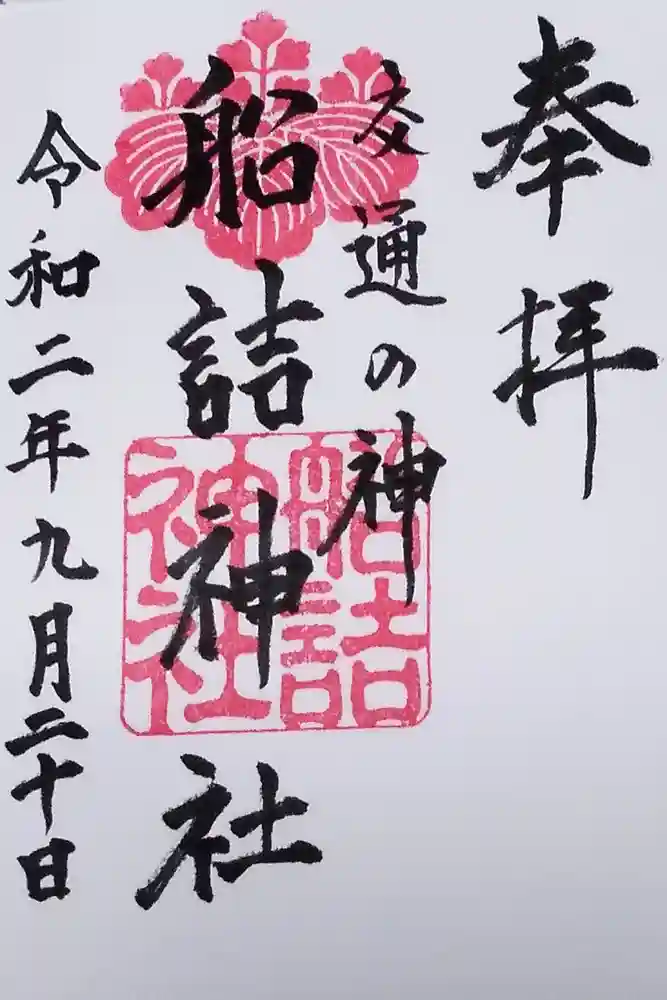 奉拝
交通の神
船詰神社
船詰
神社
令和二年九月二十日